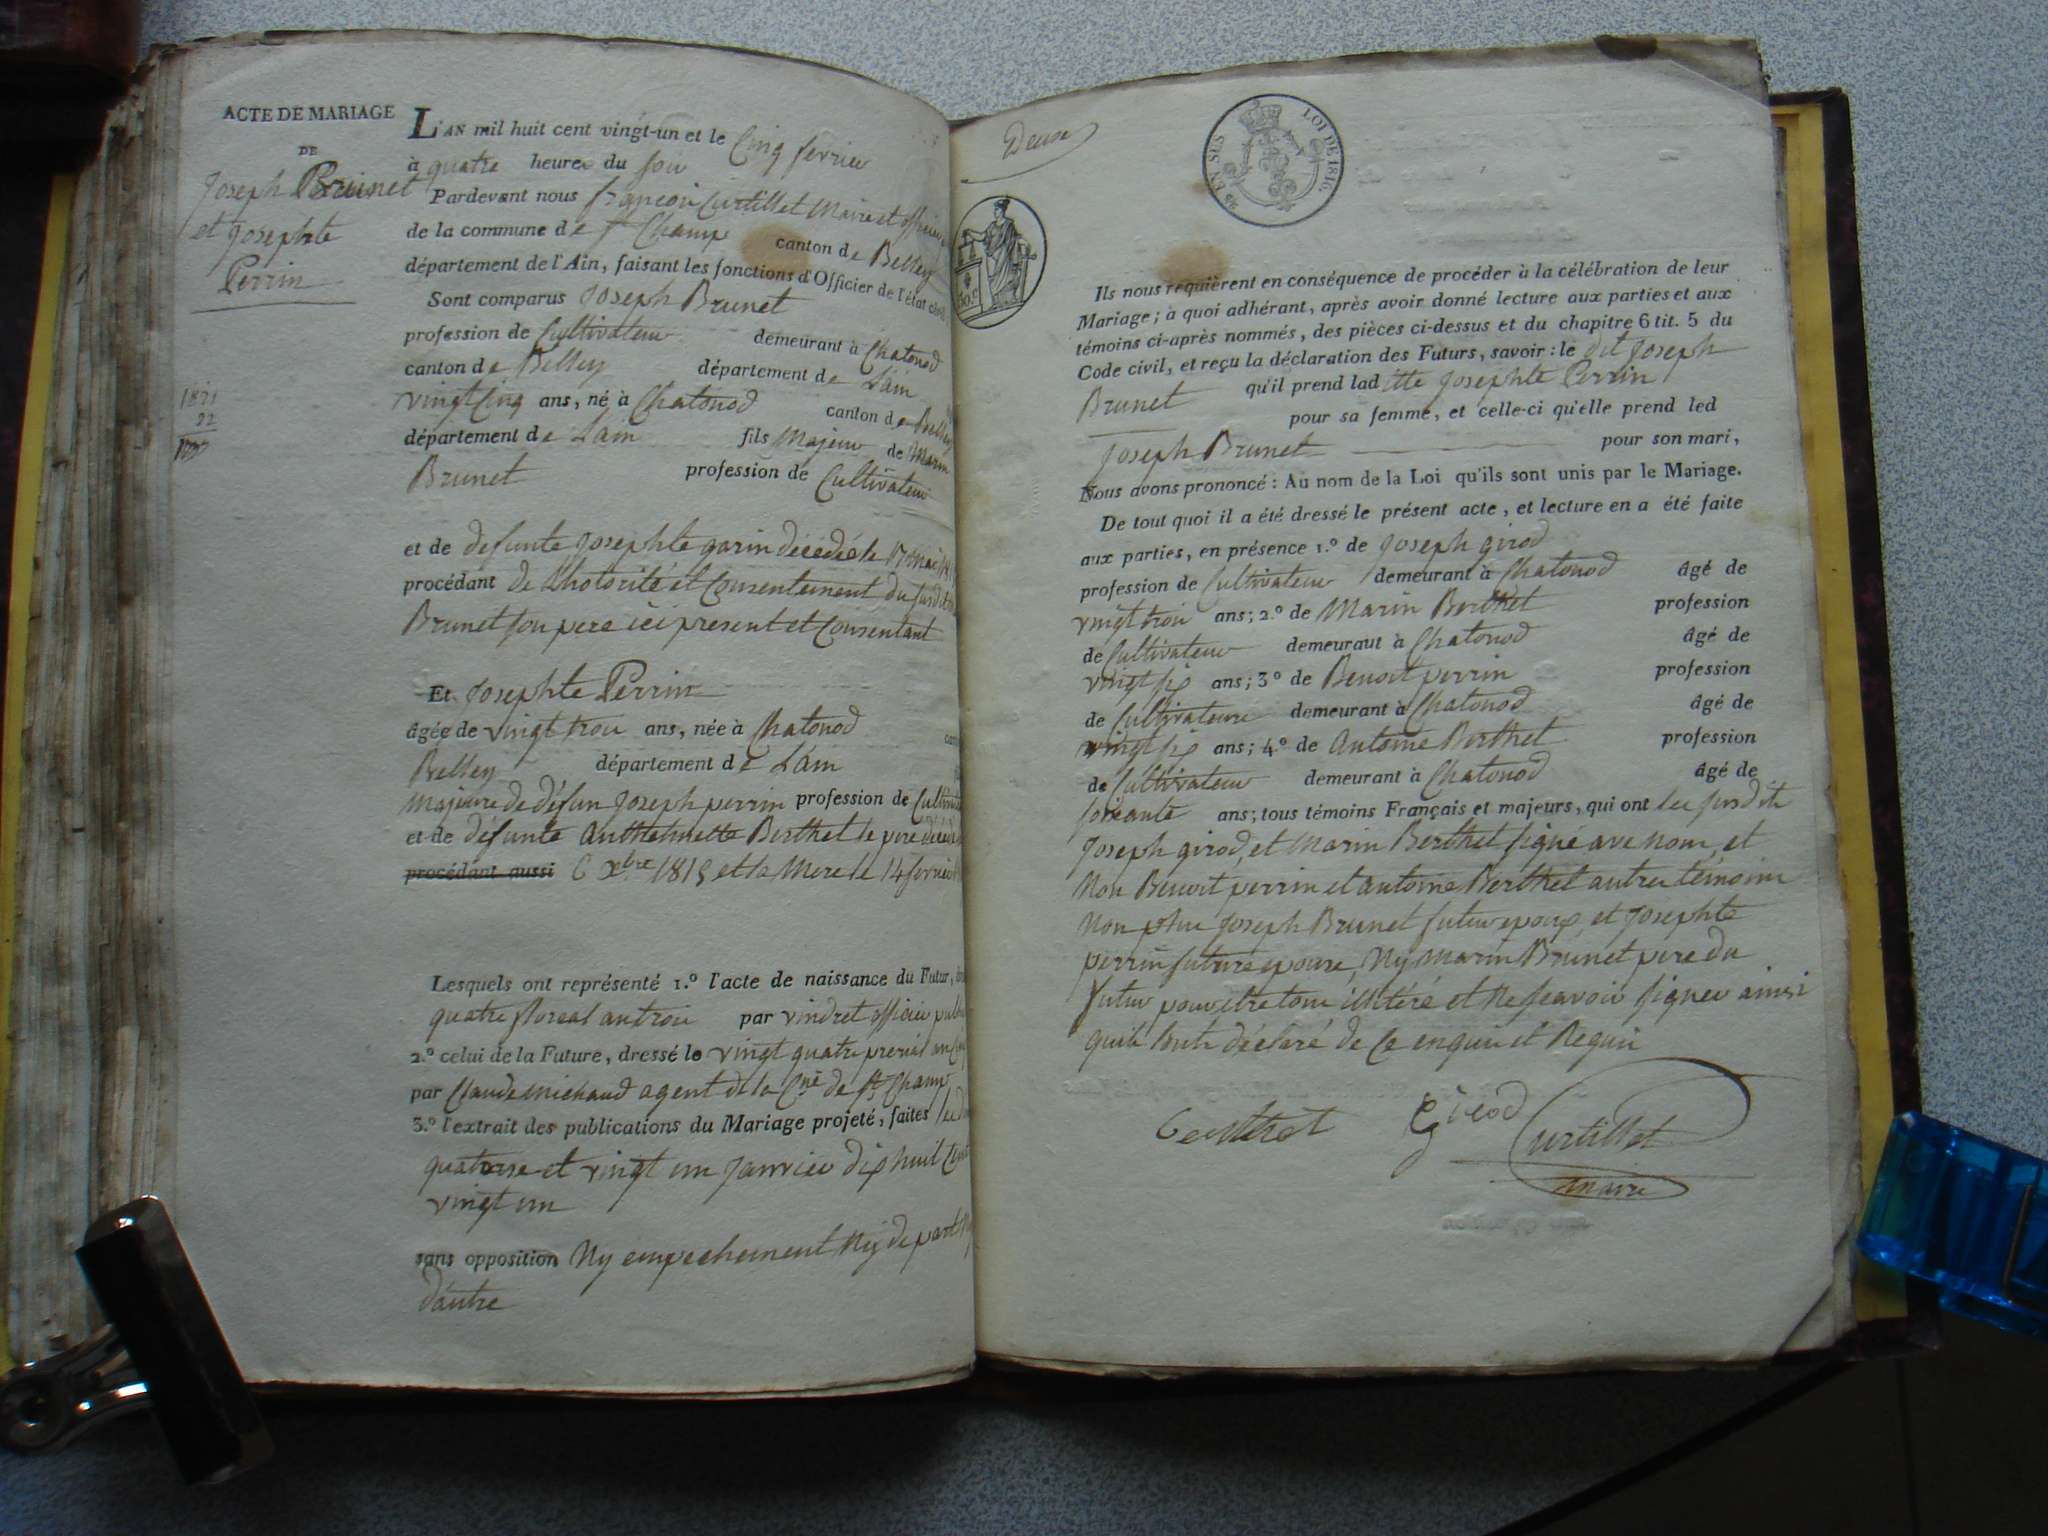 ACTE DE MARIAGE
DE
Joseph Brunet
et Josephte
Perrin
1821
22
L'AN mil huit cent vingt-un et le Cinq fevrier
à quatre heures du soir
Pardevant nous françois Curtillet Maire et officier
de la commune de St Champ canton de Belley
département de l'Ain, faisant les fonctions d'Officier de l'état civil.
Sont comparus Joseph Brunet
profession de Cultivateur demeurant à Chatonod
canton de Belley département de Lain
vingt Cinq ans, né à Chatonod canton de Belley
département de Lain fils Majeur de Marin
Brunet profession de Cultivateur
et de defunte Josephte garin décédée le 17 mai
procédant de Lhotorité et Consentement du susdit
Brunet son pere ici present et Consentant
Et Josephte Perrin
âgée de vingt trois ans, née à Chatonod
Belley département de Lain
Majeure de défun Joseph perrin profession de Cultivateur
et de défunte Anthelmette Berthet le pere décédé
procédant aussi 6 xbre 1815 et la Mere le 14 fevrier
Lesquels ont représenté 1.º l'acte de naissance du Futur,
quatre floreal an trois par vindret officier public
2.º celui de la Future, dressé le vingt quatre prerial an Cinq
par Claude michaud agent de la Cne de St Champ
3.º l'extrait des publications du Mariage projeté, faites les
quatorse et vingt un Janvier dix huit Cent
vingt un
sans opposition Ny empechement Ny de part Ny
dautre
Deux
LOI DE 1816.
Ils nous requièrent en conséquence de procéder à la célébration de leur
Mariage; à quoi adhérant, après avoir donné lecture aux parties et aux
témoins ci-après nommés, des pièces ci-dessus et du chapitre 6 tit. 5 du
Code civil, et reçu la déclaration des Futurs, savoir: le dit Joseph
Brunet qu'il prend laditte Josephte Perrin
pour sa femme, et celle-ci qu'elle prend led
Joseph Brunet pour son mari,
Nous avons prononcé: Au nom de la Loi qu'ils sont unis par le Mariage.
De tout quoi il a été dressé le présent acte, et lecture en a été faite
aux parties, en présence 1.º de Joseph girod
profession de Cultivateur demeurant à Chatonod âgé de
vingt trois ans; 2.º de Marin Berthet profession
de Cultivateur demeurant à Chatonod âgé de
vingt six ans; 3º de Benoit perrin profession
de Cultivateur demeurant à Chatonod âgé de
vingt six ans; 4.º de Antoine Berthet profession
de Cultivateur demeurant à Chatonod âgé de
soixante ans; tous témoins Français et majeurs, qui ont les susdits
Joseph girod, et Marin Berthet signé avec nous, et
Non Benoit perrin et antoine Berthet autres témoins
Non plus Joseph Brunet futur epoux, et Josephte
perrin future epouse, Ny Marin Brunet pere du
futur pour etre tous illitéré et Ne sçavoir signer ainsi
quils lonts déclaré de Ce enquis et Requis
Berthet Girod Curtillet
maire